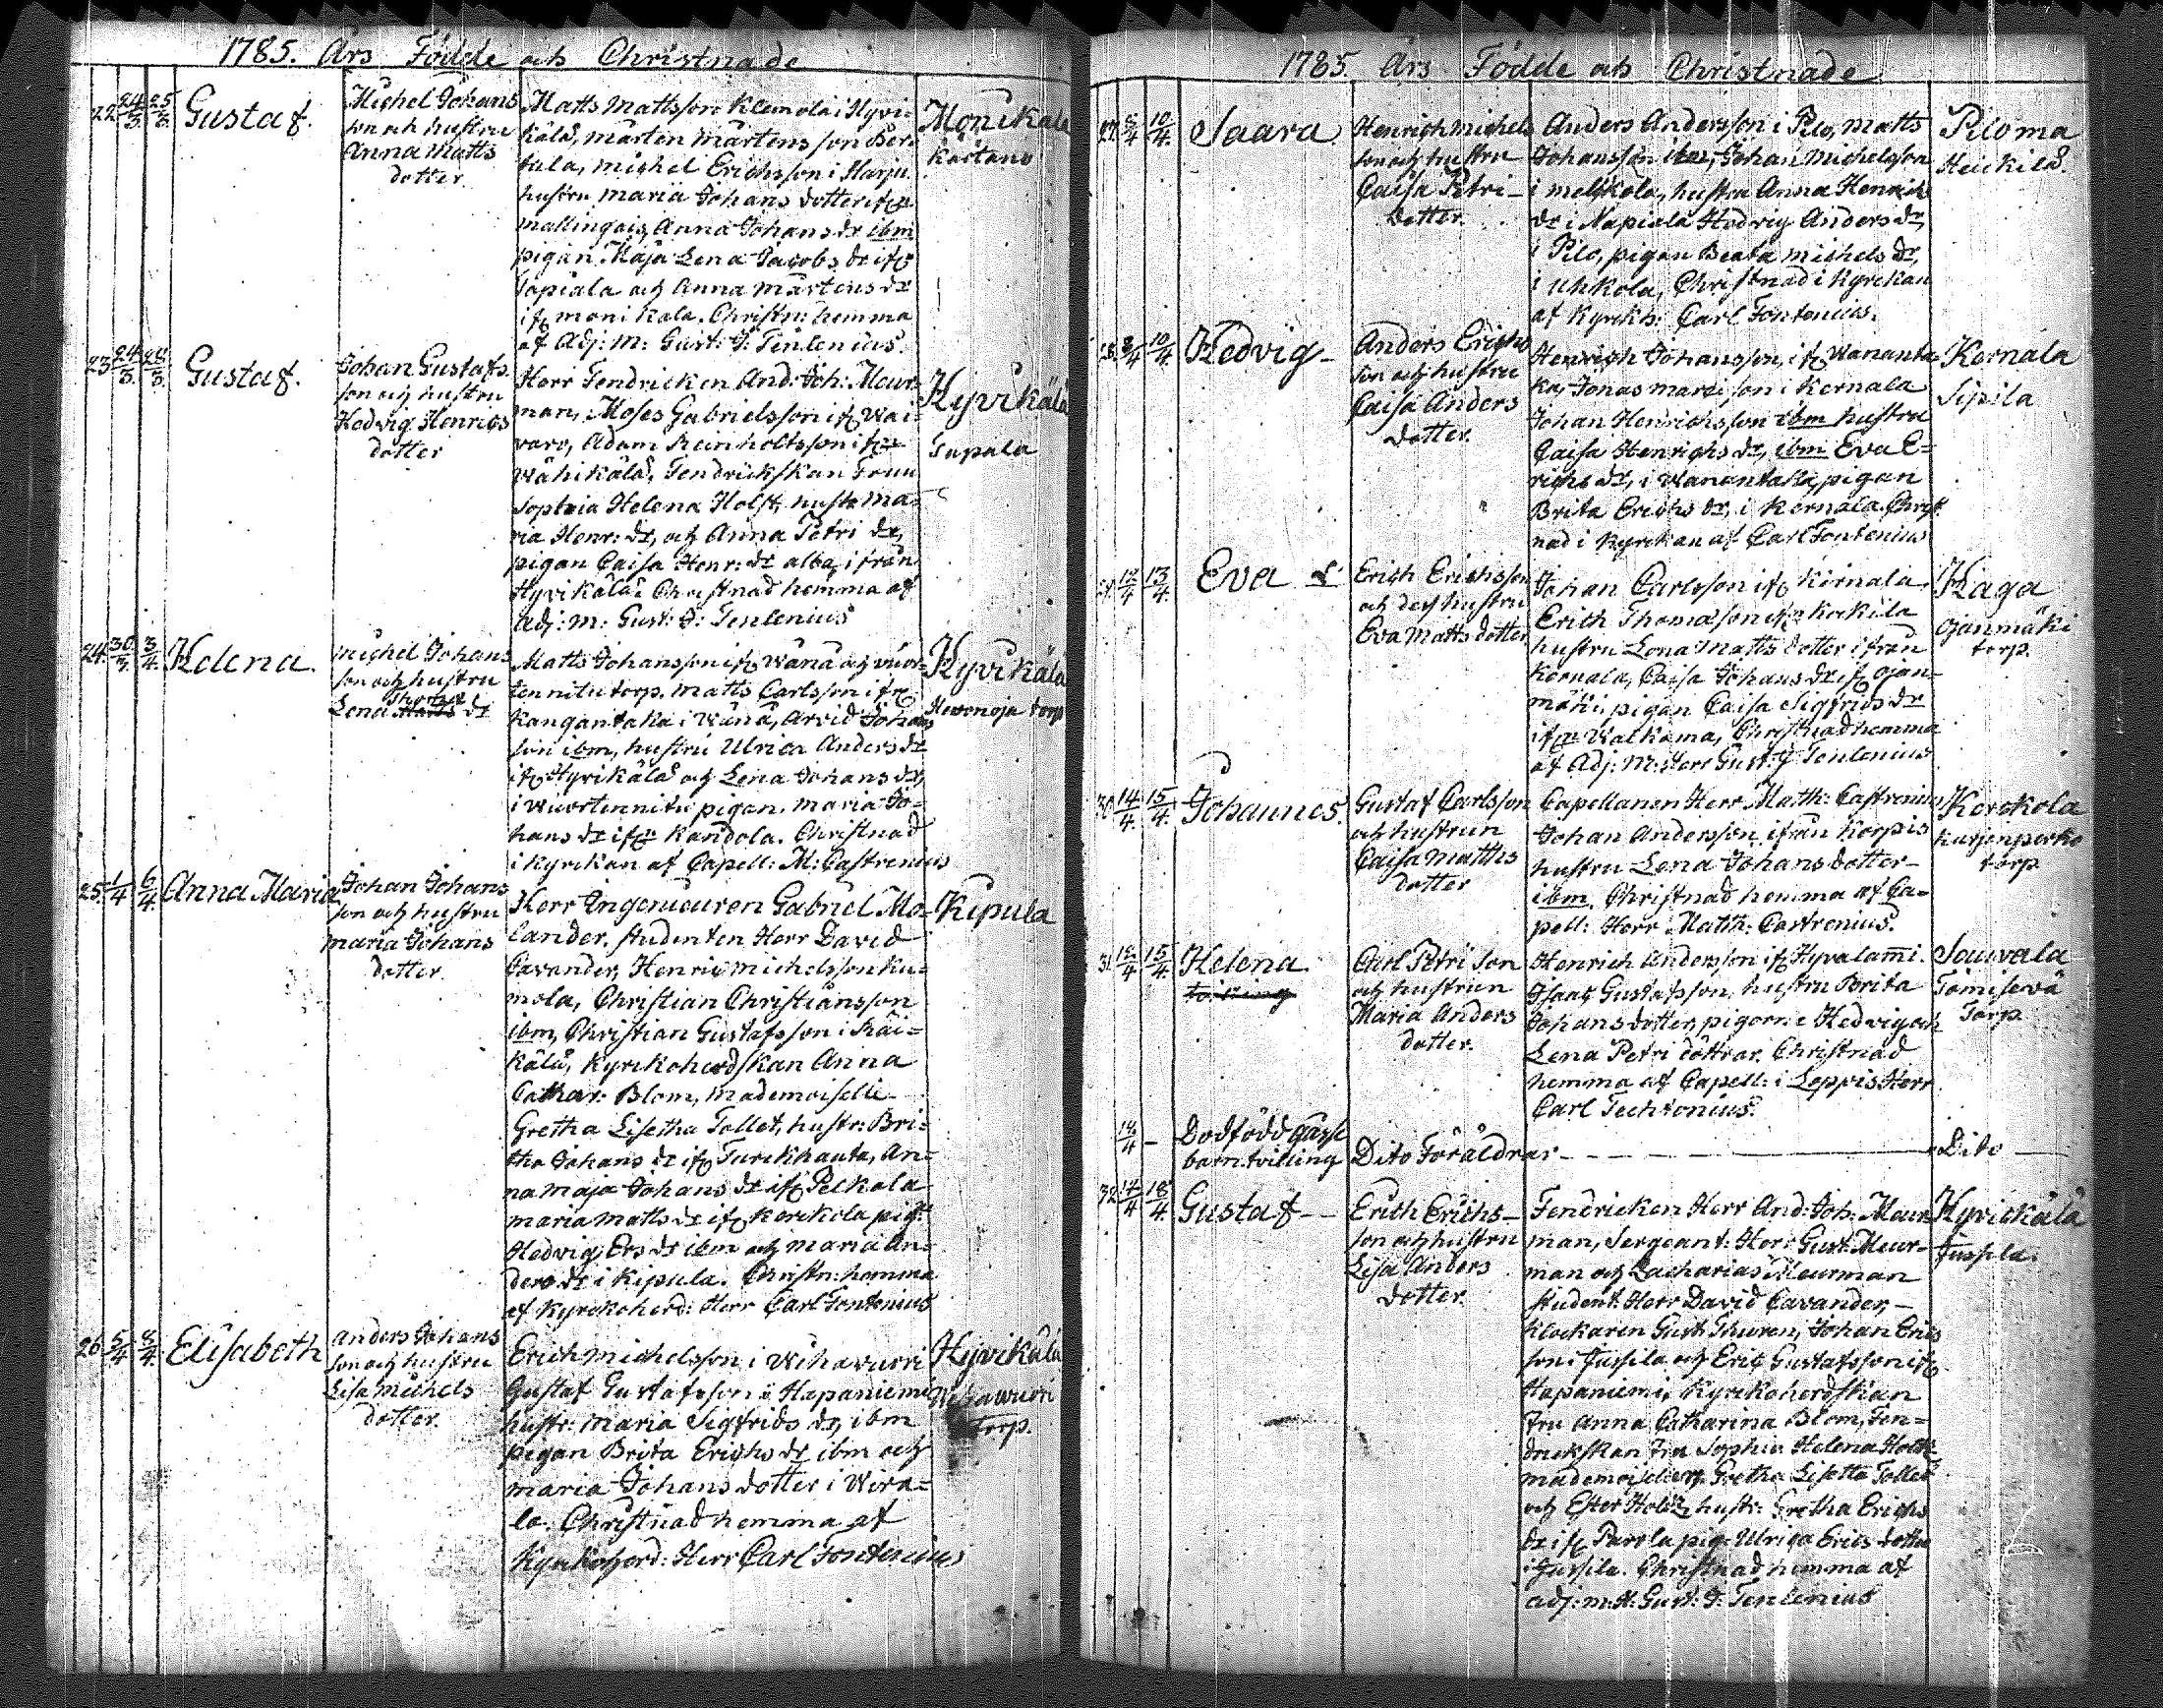 1785. Års Födde och Christnade
22 24/3 25/3 Gustaf.
Michel Johans
son och hustru
Anna Matts
dotter.
Matts Mattsson Klemola i Hyvi-
kälä, Mårten Mårtensson Ber-
tula, Michel Erichsson i Harju
hustru Maria Johans dotter ifrån
Mallingais, Anna Johans dr ibm
pigan Maja Lena Jacobs dr ifrån
Tapiala och Anna Mårtens dr
ifr Monikala. Christn: hemma
af Adj: M: Gust: J: Tenlenius.
Monikala
Kartano
23 24/3 28/3 Gustaf.
Johan Gustafs
son och hustru
Hedvig Henrichs
dotter
Herr Fendricken And: Joh: Meur-
man, Moses Gabrielsson ifr Wai-
varo, Adam Reinholtsson ifr
Wähikälä, Fendrickskan Fruu
Sophia Helena Holst, hustr Ma-
ria Henr: dr, och Anna Petri dr,
pigan Caisa Henr: dr alba ifrån
Hyvikälä Christnad hemma af
Adj: M: Gust: J: Tenlenius
Hyvikälä
Tapala
24. 30/3 3/4 Helena.
Michel Johans
son och hustru
Lena Matts dr
Matts Johansson ifr Wänä och Wuor-
tennitu torp. Matts Carlsson ifr
Kangantaka i Wänä, Arvid Johans
son ibm, hustru Ulrica Anders dr
ifr Hyvikälä och Lena Johans dr,
i Wuortennitu pigan. Maria Jo-
hans dr ifrn Kandola. Christnad
i Kyrckan af Capell: M: Castrenius
Hyvikälä
Hevonoja torp
25. 1/4 6/4 Anna Maria
Johan Johans
son och hustru
Maria Johans
dotter.
Herr Ingenieuren Gabriel Mo-
lander. studenten Herr David
Cavander, Henric Michelsson Ku-
mola, Christian Christiansson
ibm, Christian Gustafsson i Räi-
kälä, Kyrckoherdskan Anna
Cathar: Blom, Mademoiselle
Gretha Lisetha Tollet, hustr: Bri-
tha Johans dr ifr Turckhauta, An-
na Maja Johans dr ifr Pelkola
Maria Matts dr ifr Kerckola pig:
Hedvig Ers dr ibm och Maria An-
ders dr i Kipula. Christn: hemma
af Kyrckoherd: Herr Carl Fontenius
Kipula
26 5/4 8/4 Elisabeth
Anders Johans
son och hustru
Lisa Michels
dotter.
Erich Michelsson i Wihawuori
Gustaf Gustafsson i Hapaniemi
hustr: Maria Sigfrids dr, ibm
pigan Brita Erichs dr ibm och
Maria Johans dotter i Wira-
la. Christnad hemma af
Kyrckoherd: Herr Carl Fontenius
Hyvikälä
Wihawuori
Torp.
1785. Års Födde och Christnade
27. 8/4 10/4. Saara.
Henrich Michels
son och hustru
Caisa Petri-
dotter.
Anders Andersson i Pilo, Matts
Johansson ibm, Johan Michelsson
i Melkola, hustru Anna Henrichs
dr i Napiala Hedvig Anders dr,
i Pilo, pigan Beata Michels dr,
i Uhkola, Christnad i Kyrckan
af Kyrckh: Carl Fontenius.
Piloma
Heickilä.
28. 8/4 10/4. Hedvig-
Anders Erichs
son och hustru
Caisa Anders
dotter.
Henrich Johansson, ifr Wananta-
ka, Jonas Marcisson i Kernala
Johan Henrichsson ibm hustru
Caisa Henrichs dr, ibm Eva E-
richs dr, i Wanantaka, pigan
Brita Erichs dr, i Kernala. Christ
nad i Kyrckan af Carl Fontenius
Kernala
Sipilä
29. 12/4 13/4. Eva
Erich Erichsson
och dess hustru
Eva Matts dotter
Johan Carlsson ifr Kernala.
Erich Thomasson ifr Kockila
hustru Lena Matts dotter ifrån
Kernala, Caisa Johans dr ifr Ojan-
mäki, pigan Caisa Sigfrids dr
ifrn Walkama, Christnad hemma
af Adj: M: Herr Gust: J Tenlenius
Haga
Ojanmäki
torp.
30 14/4. 15/4. Johannes.
Gustaf Carlsson
och hustrun
Caisa Matths
dotter
Capellanen Herr Math: Castrenius
Johan Andersson, ifrån Korpis
hustru Lena Johans dotter-
ibm. Christnad hemma af Ca-
pell: Herr Math: Castrenius.
Kerckola
Kurjenpercko
torp
31. 12/4 15/4. Helena
tvilling
Carl Petri son
och hustrun
Maria Anders
dotter.
Henrich Andersson ifr Hyvalammi.
Isaac Gustafsson, hustru Brita
Johans dotter, pigorne Hedvig och
Lena Petri döttrar. Christnad
hemma af Capell: i Leppis Herr
Carl Techtonius.
Sauvala
Tömisevä
Torp.
14/4 - Dödfödd gåsse
barn tvilling
Dito Föräldrar - - - Dito
32 14/4 18/4. Gustaf--
Erich Erichs-
son och hustru
Lisa Anders
dotter.
Fendricken Herr And: Joh: Meur-
man, Sergeant: Herr Gust: Meur-
man och Zacharias Meurman
student: Herr David Cavander,-
Klockaren Gust Thuren, Johan Erics
son i Jussila och Eric Gustafsson ifr
Hapaniemi, Kyrckoherdskan
Fru Anna Catharina Blom, Fen-
drickskan Fru Sophia Helena Holst
Mademoiselleng Gretha Lisetta Tollet
och Ester Holst, hustr: Gretha Erichs
dr ifr Parola pig: Ulrica Erics dotter
i Jussila. Christnad hemma af
adj: M. H. Gust: J: Tenlenius
Hyvickälä
Jussila.